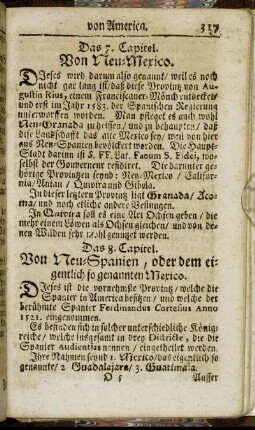 von America. 317
Das 7. Capitel.
Von Neu-Mexico.
Dieses wird darum also genannt/ weil es noch
nicht gar lang ist/ daß diese Provintz von Au-
gustin Rius, einem Franciscaner-Mönch entdecket/
und erst im Jahr 1583. der Spanischen Regierung
unterworffen worden. Man pfleget es auch wohl
Neu-Granada zu heissen/ und zu behaupten/ daß
diß Landschafft das alte Mexico sey/ weil von hier
aus Neu-Spanien bevölckert worden. Die Haupt-
Stadt darinn ist S. FE, Lat. Fanum S. Fidei, wo-
selbst der Gouverneur residiret. Die darunter ge-
hörige Provintzen seynd: Neu-Mexico/ Califor-
nia/ Anian/ Quivira und Cibola.
In dieser letztern Provintz ligt Granada/ Aco-
ma/ und noch etliche andere Vestungen.
In Quivira soll es eine Art Ochsen geben/ die
mehr einem Löwen als Ochsen gleichen/ und von de-
nen Wilden sehr wohl genutzet werden.
Das 8. Capitel.
Von Neu-Spanien, oder dem ei-
gentlich so genannten Mexico.
Dieses ist die vornehmste Provintz/ welche die
Spanier in America besitzen/ und welche der
berühmte Spanier Ferdinandus Cortesius Anno
1521. eingenommen.
Es befinden sich in solcher unterschiedliche König-
reiche/ welche insgesamt in drey Districte, die die
Spanier Audientias nennen/ eingetheilet werden.
Ihre Nahmen seynd 1. Mexico/ das eigentlich so
genannte/ 2 Guadalajara/ 3. Guatimala.
O 5 Ausser